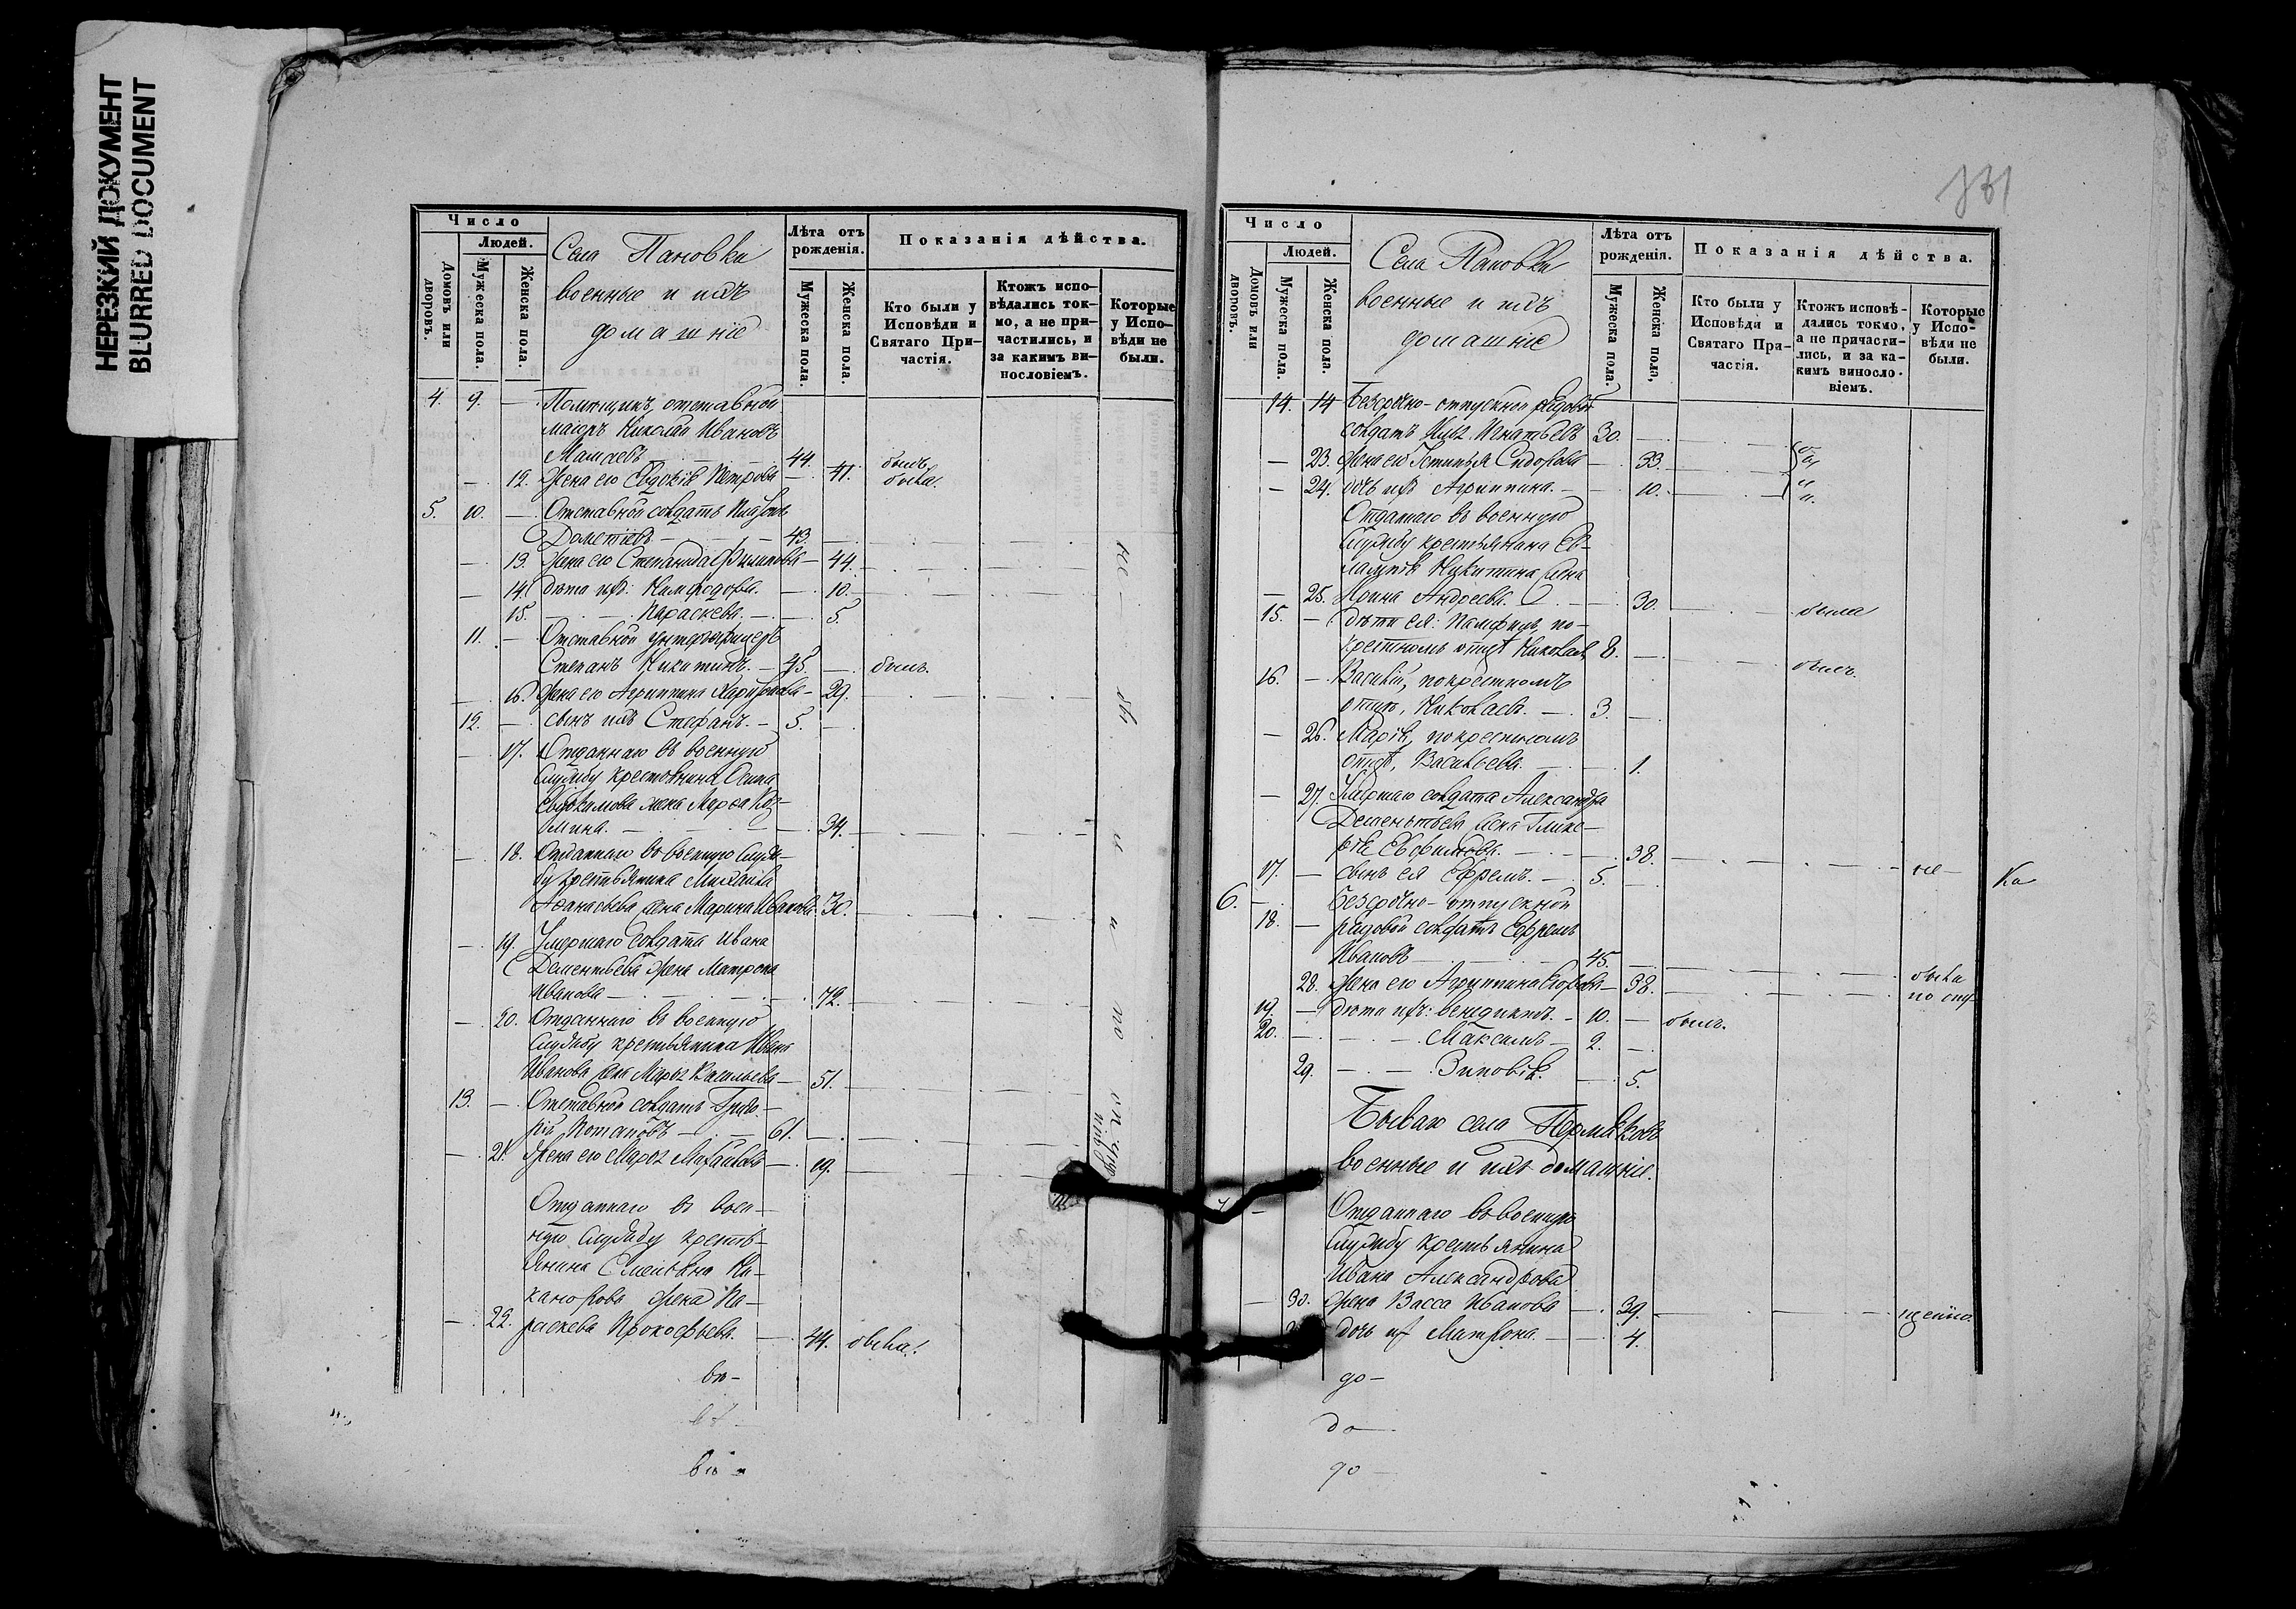 НЕРЕЗКИЙ ДОКУМЕНТ
BLURRED DOCUMENT
Число
Людей.
Домовъ или дворовъ.
Мужеска пола.
Женска пола.
Села Пановки
военные и ихъ
домашніе
Лѣта отъ рожденія.
Мужеска пола.
Женска пола.
Показанія дѣйства.
Кто были у Исповѣди и Святаго Причастія.
Ктожъ исповѣдались токмо, а не причастились, и за какимъ винословіемъ.
Которые у Исповѣди не были.
4. 9. — Помѣщикъ, отставной
маіоръ Николай Ивановъ
44. былъ
— 12. Жена его Евдокія Петрова — 41. была.
5. 10. — Отставной солдатъ
Дометіевъ — 43. —
— 13. Жена его Степанида Филипова — 44.
— 14. дѣти ихъ: Нимфодора. — 10.
15. — Параскева. — 5.
11. — Отставной унтеръ офицеръ
Степанъ Никитинъ. — 45. — былъ.
— 16. Жена его Агрипина — 29.
12. — сынъ ихъ Стефанъ. — 5. —
— 17. Отданнаго въ военную
службу крестьянина Осипа
Евдокимова жена Марѳа Коз-
мина. — 34.
— 18. Отданнаго въ военную служ-
бу крестьянина Михаила
Аѳанасьева жена Марина Иванова 30.
— 19. Умершаго солдата Ивана
Дементьева жена Матрона
Иванова — 72.
— 20. Отданнаго въ военную
службу крестьянина Ивана
Иванова жена Марѳа Васильева — 51.
13. — Отставной солдатъ Григо-
рій Потаповъ — 61.
— 21. Жена его Марѳа Михайлова —
Отданнаго въ воен-
ную службу кресть-
янина Ни-
канорова жена Па-
— 22. раскева Прокофьева. — 44. была.
вп-
Число
Людей.
Домовъ или дворовъ.
Мужеска пола.
Женска пола.
Села Пановки
военные и ихъ
домашніе
Лѣта отъ рожденія.
Мужеска пола.
Женска пола,
Показанія дѣйства.
Кто были у Исповѣди и Святаго Причастія.
Ктожъ исповѣдались токмо, а не причастились, и за какимъ винословіемъ.
Которые у Исповѣди не были.
14. 14 Безсрочно-отпускной рядовой
солдатъ Игнатьевъ 30. —
— 23. Жена его Устинья Сидорова — 33.
— 24. дочь ихъ Агриппина. — 10.
Отданнаго въ военную
службу крестьянина Ев-
лампія Никитина жена
— 25. Ирина Андреева. — 30. была
15. — дѣти ея: Памфилъ, по
крестномъ отцѣ Николаевъ 8. — былъ.
16. — Василій, по крестномъ
отцѣ, Николаевъ. — 3. —
— 26. Марія, по крестномъ
отцѣ, Васильева. — 1.
— 27. Умершаго солдата Александра
Дементьева жена Глике-
рія Евфимова. — 38. не-
17. — сынъ ея Ефремъ. — 5. —
6. — Безсрочно-отпускной
18. — рядовой солдатъ Ефремъ
Ивановъ — 45. —
28. Жена его Агриппина — 38. была
19. — дѣти ихъ: Венедиктъ. — 10. — былъ.
20. — Максимъ — 2. —
29. — Зиновія. — 5.
военные и ихъ домашніе.
— Отданнаго въ военную
службу крестьянина
Ивана Александрова
— 30. жена Васса Иванова — 39.
дочь их Матрона. — 4.
до-
до-
до-